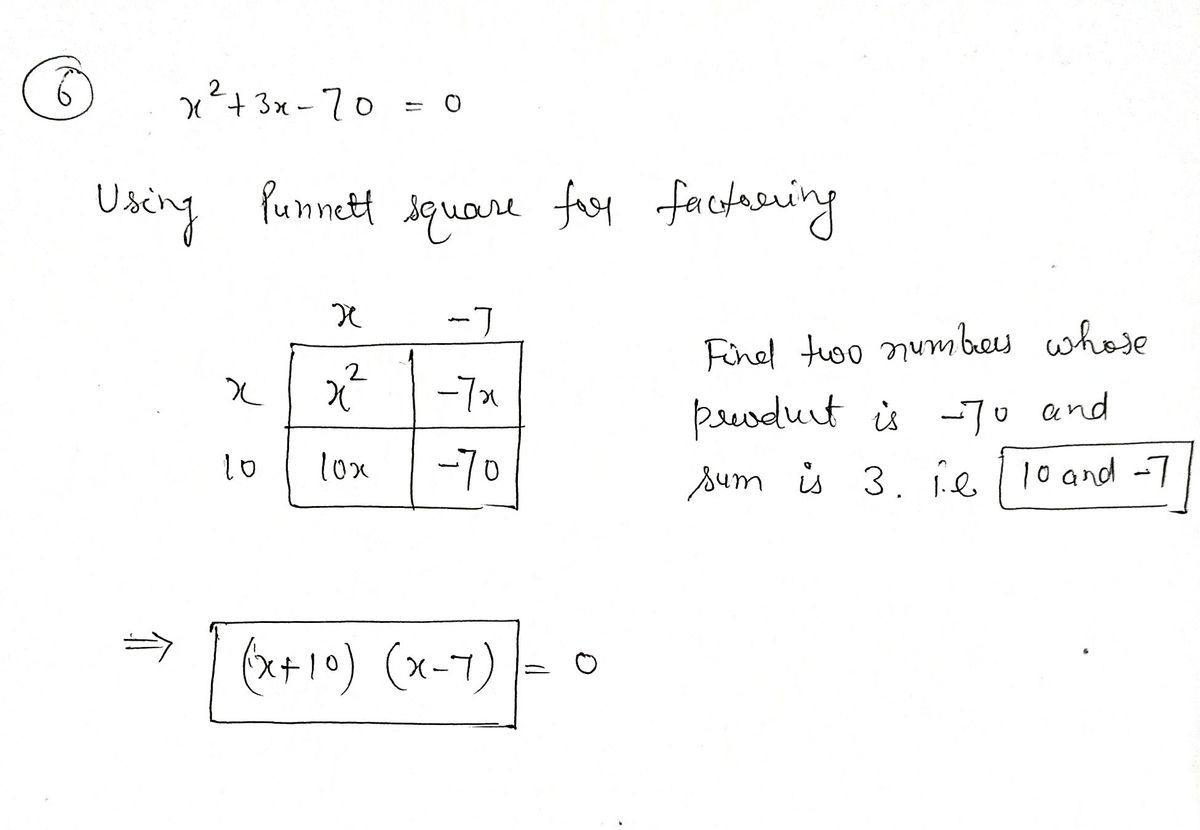 6
x² + 3x - 70 = 0
Using Punnett square for factoring
x -7
x x² -7x
10 10x -70
Find two numbers whose
product is -70 and
sum is 3. i.e 10 and -7
⇒ (x+10) (x-7) = 0